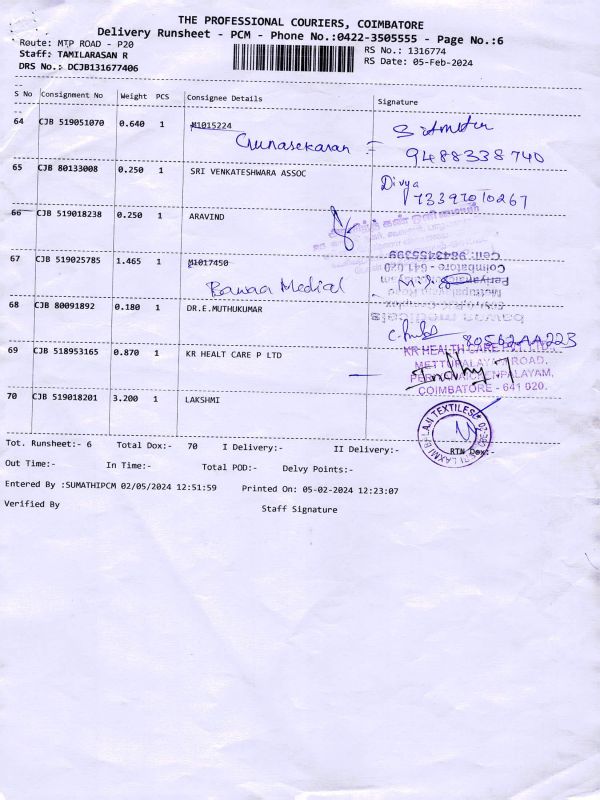 THE PROFESSIONAL COURIERS, COIMBATORE
Delivery Runsheet - PCM - Phone No.:0422-3505555 - Page No.:6
Route: MTP ROAD - P20
RS No.: 1316774
Staff: TAMILARASAN R
RS Date: 05-Feb-2024
DRS No.: DCJB131677406
S No Consignment No Weight PCS Consignee Details Signature
64 CJB 519051070 0.640 1 M1015224
Gunasekaran
9488338740
65 CJB 80133008 0.250 1 SRI VENKATESHWARA ASSOC
Divya
73397010267
66 CJB 519018238 0.250 1 ARAVIND
67 CJB 519025785 1.465 1 M1017450
Cell: 9843455399
Coimbatore - 641 020
Bawaa Medial
68 CJB 80091892 0.180 1 DR.E.MUTHUKUMAR
69 CJB 518953165 0.870 1 KR HEALT CARE P LTD
KR HEALTH CARE
METTUPALAYAM ROAD,
COIMBATORE - 641 020.
70 CJB 519018201 3.200 1 LAKSHMI
Tot. Runsheet:- 6 Total Dox:- 70 I Delivery:- II Delivery:- RTN Dox:-
Out Time:- In Time:- Total POD:- Delvy Points:-
Entered By :SUMATHIPCM 02/05/2024 12:51:59 Printed On: 05-02-2024 12:23:07
Verified By Staff Signature